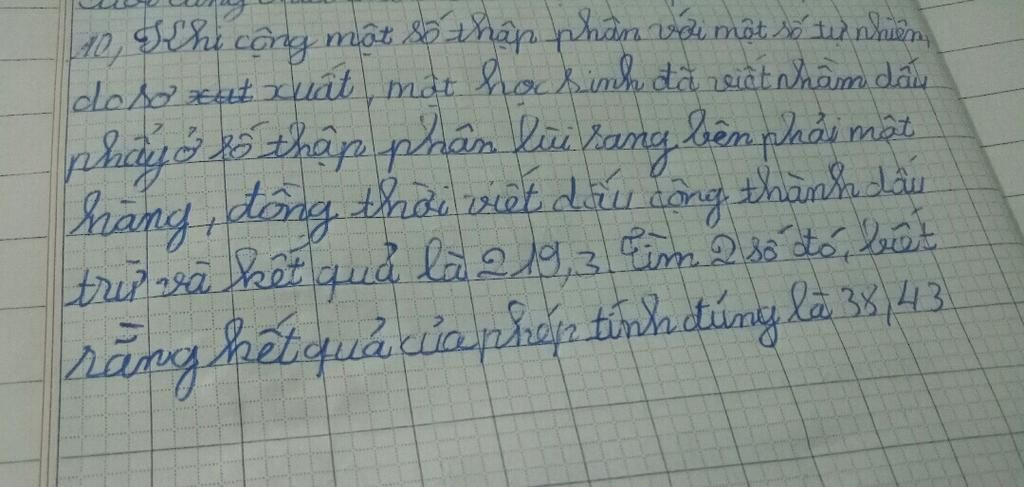 10, Khi cộng một số thập phân với một số tự nhiên,
do sơ xut xuất, một học sinh đã viết nhầm dấu
phẩy ở số thập phân lùi sang bên phải một
hàng, đồng thời viết dấu cộng thành dấu
trừ và kết quả là 219,3 Tìm 2 số đó, biết
rằng kết quả của phép tính đúng là 38,43